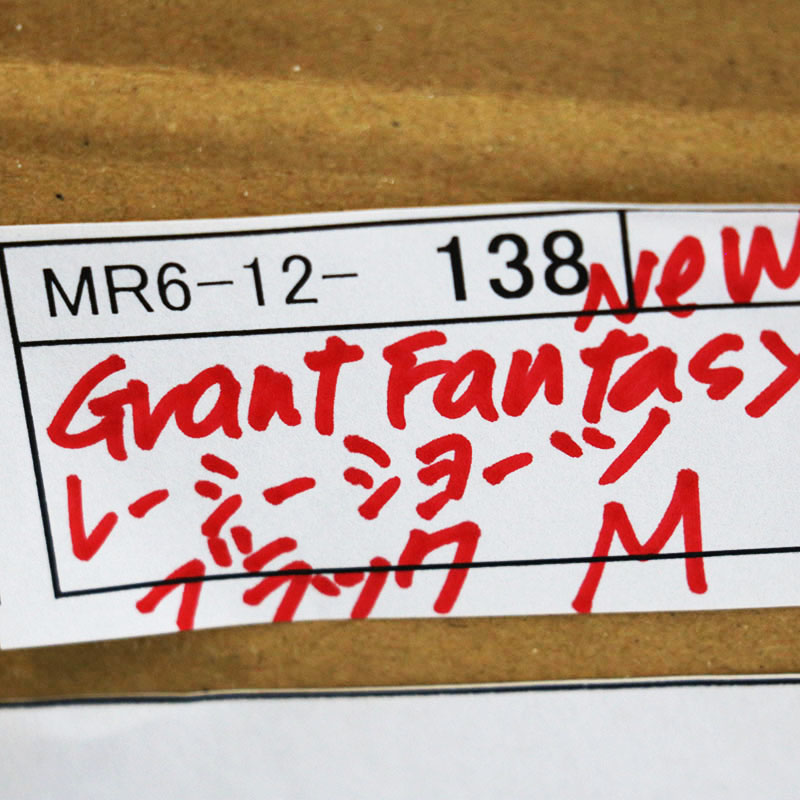 MR6-12- 138 NeW
Grant Fantasy
レーシーショーツ
ブラック M